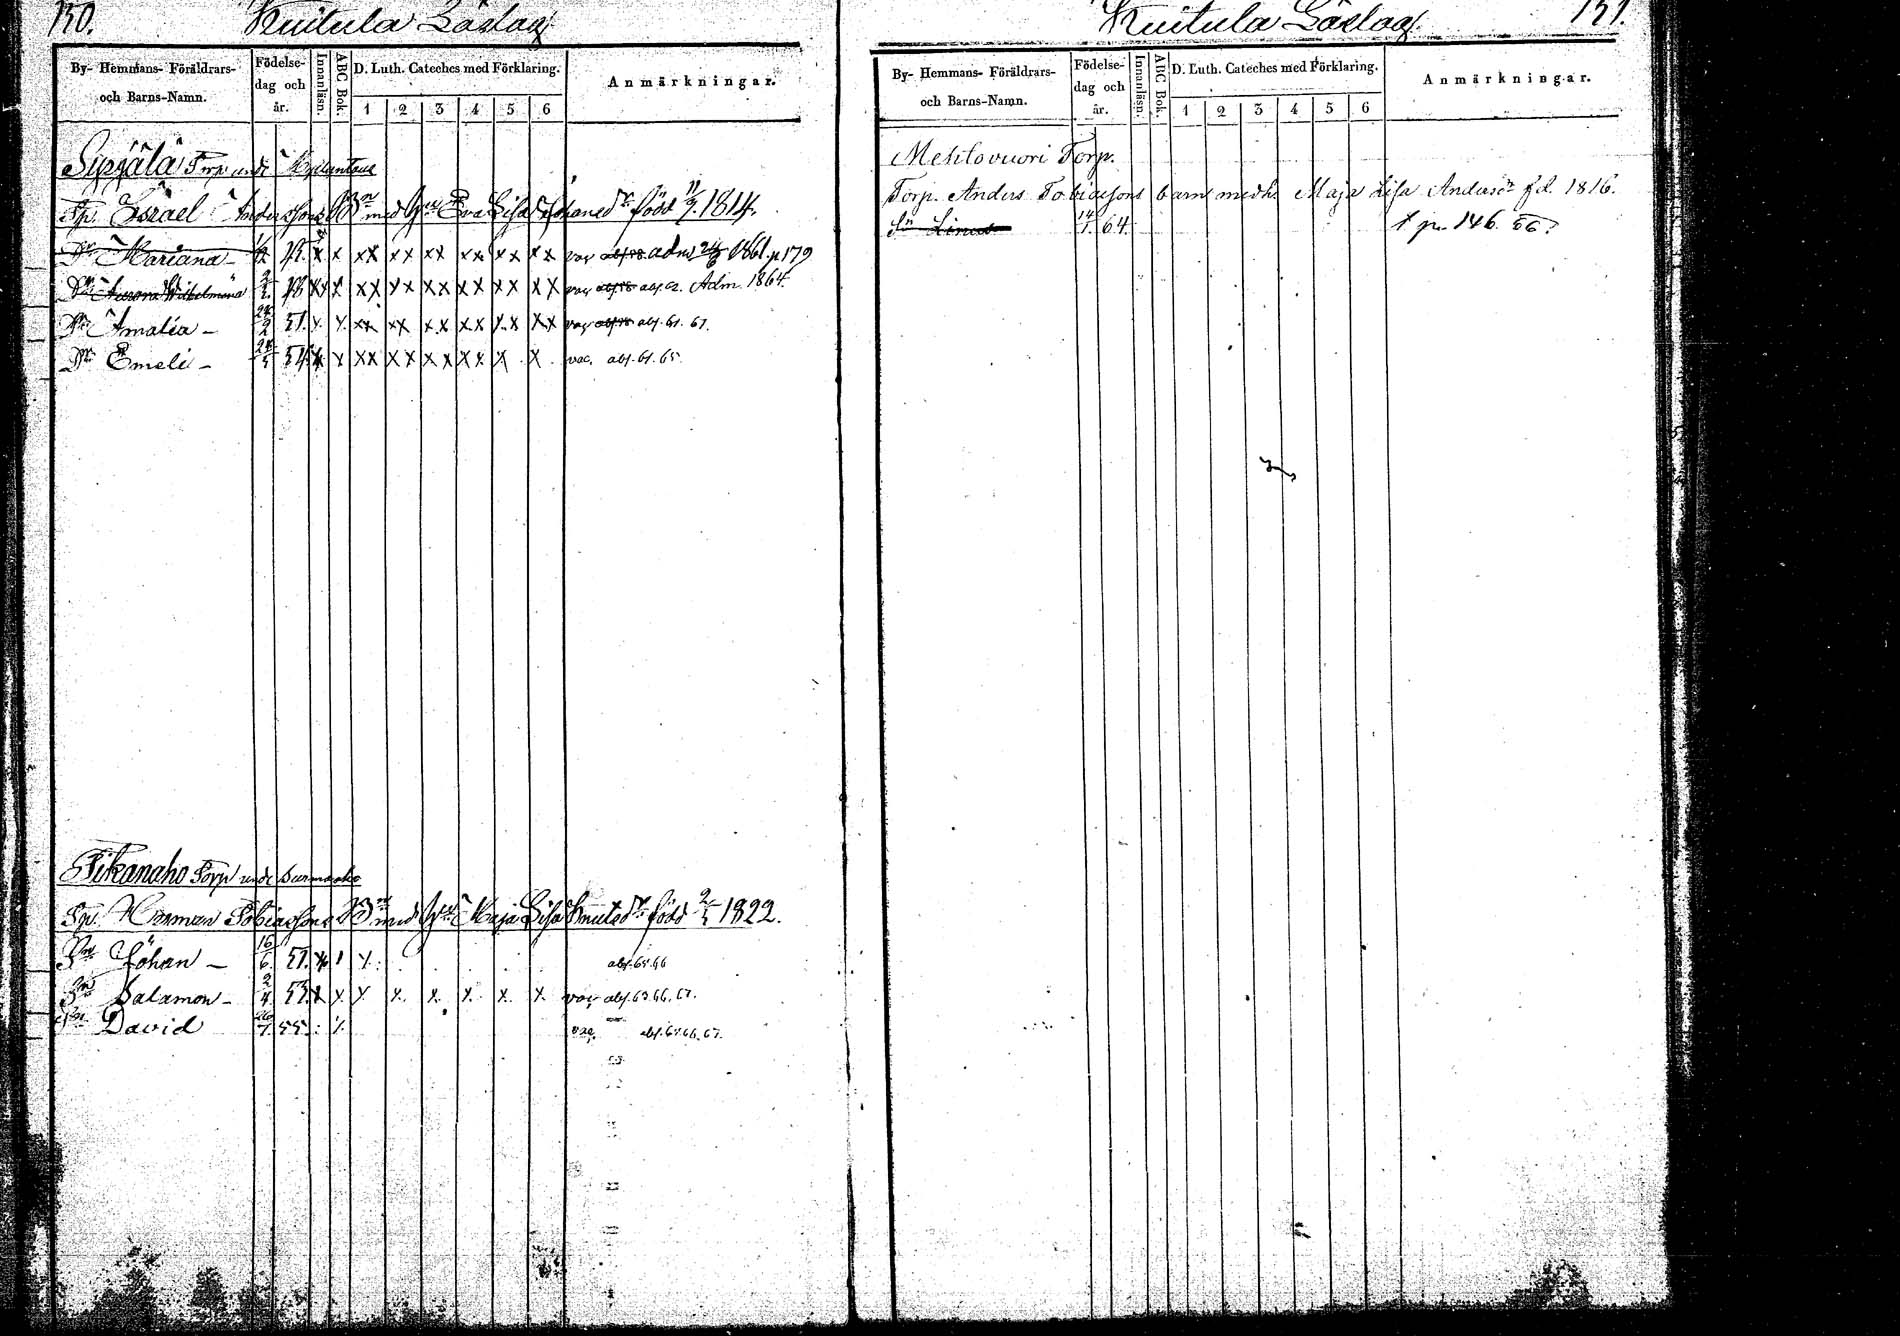 150. Kuitula Läslag
By- Hemmans- Föräldrars- och Barns-Namn.
Födelse- dag och år.
Innanläsn.
ABC Bok.
D. Luth. Cateches med Förklaring.
1 2 3 4 5 6
Anmärkningar.
Sirjälä Torp und
Tp. Israel Anderssons Bn med Hu Eva Lisa Johansdr född 11/7. 1814.
Dr Mariana x x xx xx xx xx xx xx vac adm 1861. p 179
Dr Aurora Wilhelmina x x xx xx xx xx xx xx vac Adm. 1864.
Dr Amalia - 51. x x xx xx xx xx xx xx vac abs. 61. 67.
Dr Emeli - 54. x x xx xx xx xx x x vac. abs. 61. 65.
Pikanaho Torp und Surmaaho
Tp. Herman Tobiassons Bn med Hu Maja Lisa Knutsdr född 1822.
Sn Johan - 16/6. 51. x abs. 65. 66
Sn Salamon - 2/4. 53. x x x x x x x x vac abs. 63. 66. 67.
Sn David 26/7. 55. vac. abs. 65. 66. 67.
Kuitula Läslag 151.
By- Hemmans- Föräldrars- och Barns-Namn.
Födelse- dag och år.
Innanläsn.
ABC Bok.
D. Luth. Cateches med Förklaring.
1 2 3 4 5 6
Anmärkningar.
Mehtovuori Torp.
Torp. Anders Tobiassons barn med h. Maja Lisa Andersdr fd. 1816.
Sn Linus 14/1. 64. t p. 146. 66.